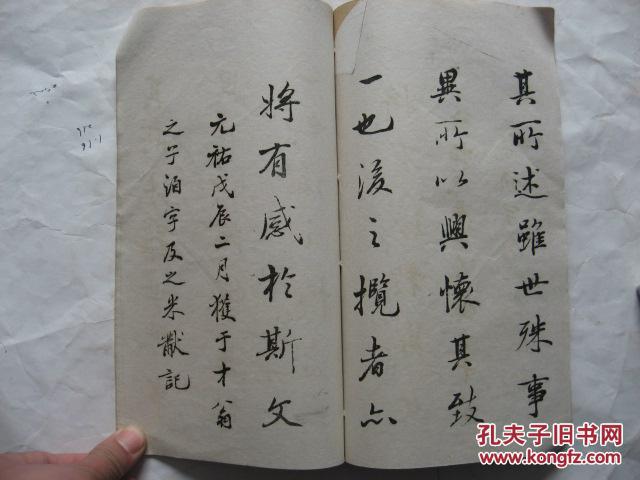 其所述雖世殊事
異所以興懷其致
一也後之攬者亦
將有感於斯文
元祐戊辰二月獲于才翁
之子洎字及之米黻記
孔夫子旧书网
www.kongfz.com